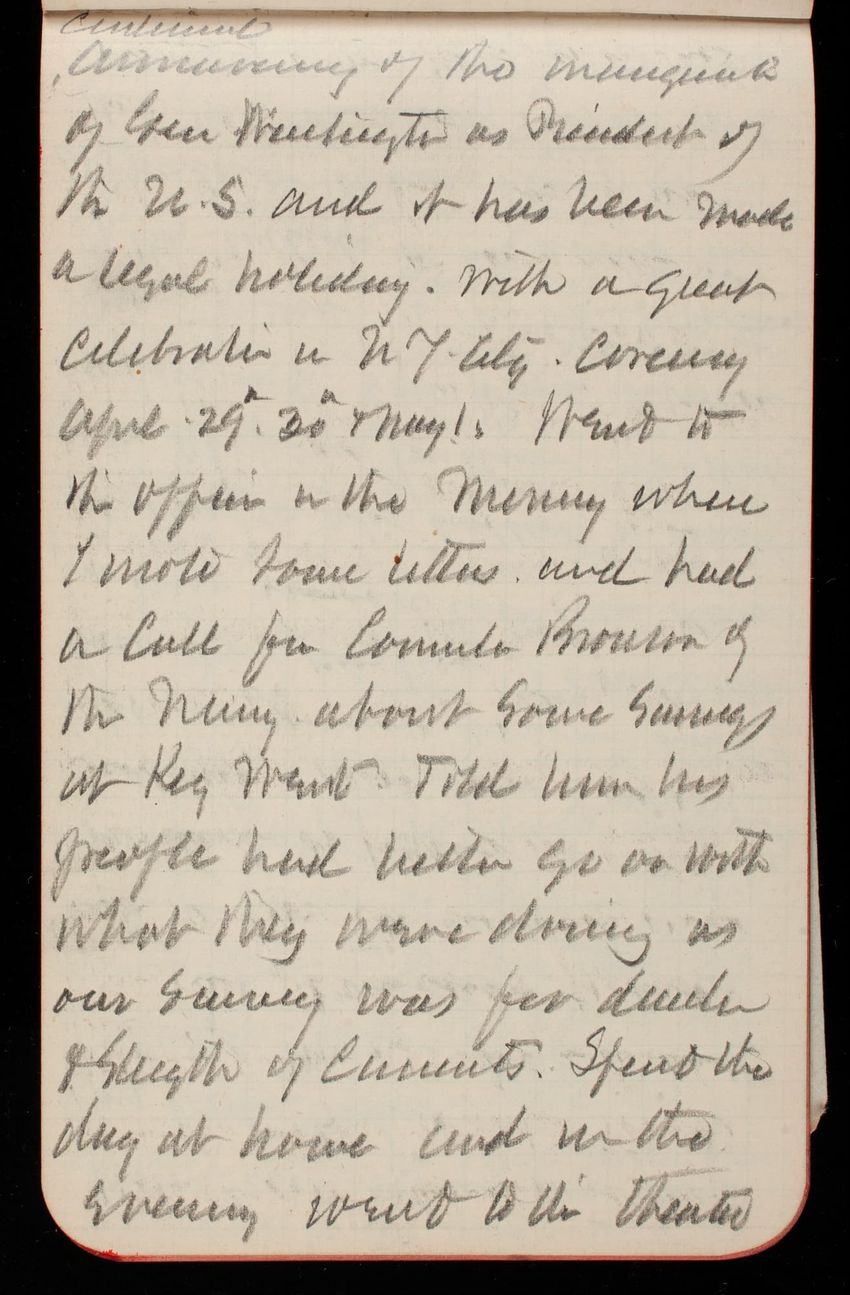 centennial
Anniversary of the inauguration
of Genl Washington as President of
the U.S. and it has been made
a legal holiday. With a great
celebration in N Y. City. Covering
April 29th. 30th & May 1. Went to
the office in the Morning where
I wrote some letters. and had
a Call from Comdr Bronson of
the Navy. about Some Surveys
at Key West. Told him his
people had better go on with
what they were doing as
our Survey was for direction
& Strength of Currents. Spent the
day at home and in the
evening went to the theatre